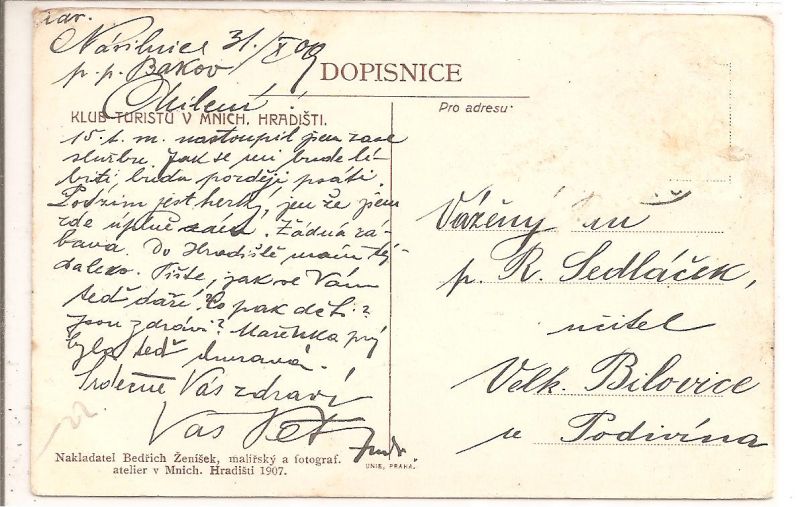 31./X 09
p. p. Bakov
DOPISNICE
Milení
KLUB TURISTŮ V MNICH. HRADIŠTI.
15. t. m. nastoupil jsem zase
službu. Jak se mi bude lí-
biti budu později psáti.
Podzim jest hezký, jen že jsem
zde úplně sám. Žádná zá-
bava. Do Hradiště mám též
daleko. Pište, jak se Vám
teď daří? Co pak děti?
Jsou zdrávi? Mařenka prý
byla teď churavá.
Srdečně Vás zdraví
Váš
Nakladatel Bedřich Ženíšek, malířský a fotograf.
atelier v Mnich. Hradišti 1907.
UNIE, PRAHA.
Pro adresu:
Vážený
p. R. Sedláček,
učitel
Velk. Bílovice
u Podivína